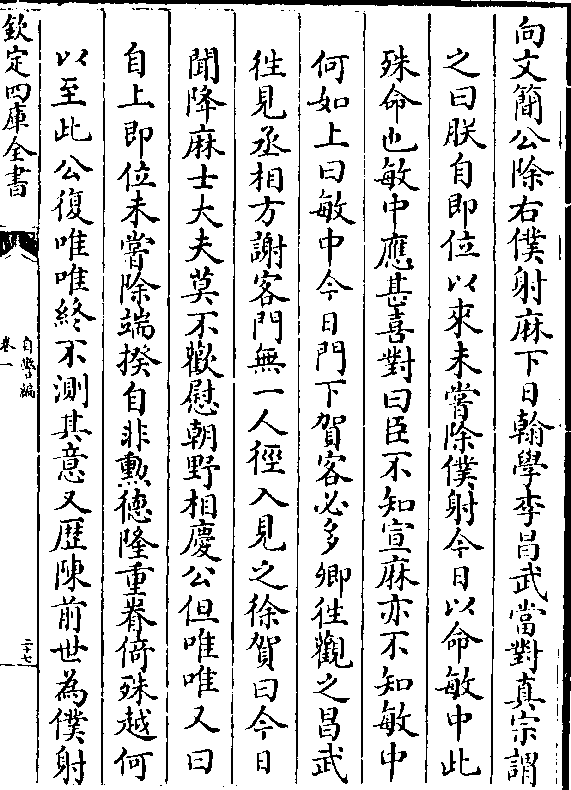 向文簡公除右僕射麻下日翰學李昌武當對真宗謂
之曰朕自即位以來未嘗除僕射今日以命敏中此
殊命也敏中應甚喜對曰臣不知宣麻亦不知敏中
何如上曰敏中今日門下賀客必多卿徃觀之昌武
徃見丞相方謝客門無一人徑入見之徐賀曰今日
聞降麻士大夫莫不歡慰朝野相慶公但唯唯又曰
自上即位未嘗除端揆自非勲德隆重眷倚殊越何
以至此公復唯唯終不測其意又歴陳前世為僕射
欽定四庫全書
自警編
卷一
二十七